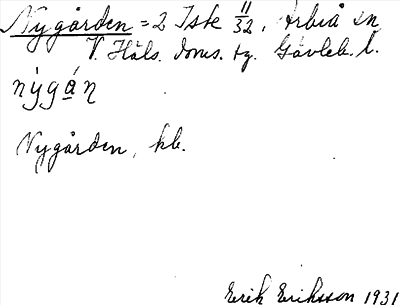 Nygården = 2 Iste 11/32, Arbrå sn
V. Häls. doms. tg. Gävleb. l.
nỳgá̱n
Nygården, kb.
Erik Eriksson 1931